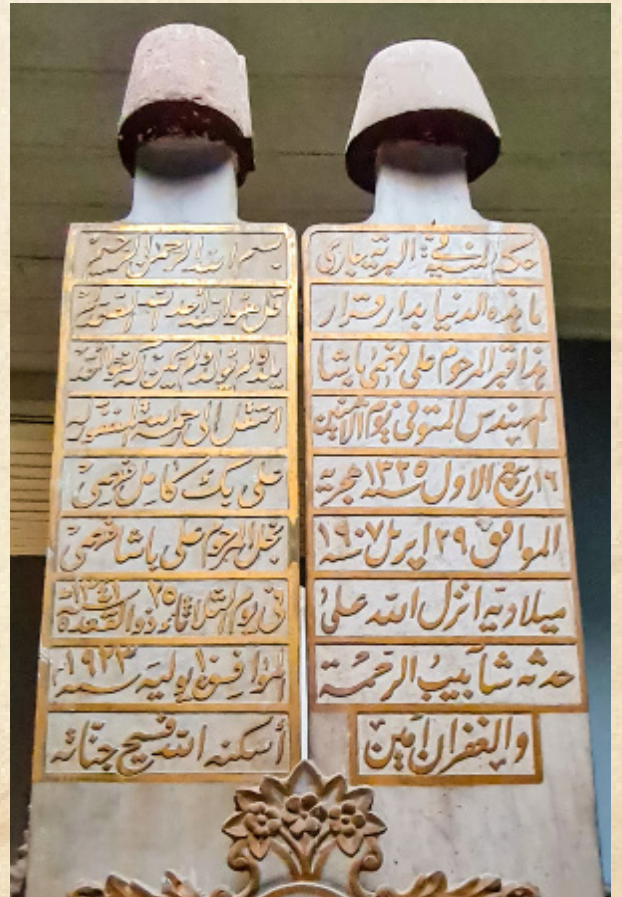 حكم المنية في البرية جاري
ما هذه الدنيا بدار قرار
هذا قبر المرحوم على فهمى باشا
المهندس المتوفى يوم الاثنين
١٦ ربيع الاول سنة ١٣٢٥ هجرية
الموافق ٢٩ ابريل سنة ١٩٠٧
ميلادية انزل الله على
جدثه شآبيب الرحمة
والغفران آمين
بسم الله الرحمن الرحيم
قل هو الله احد الله الصمد لم
يلد ولم يولد ولم يكن له كفوا احد
انتقل الى رحمة الله المغفور له
على بك كامل فهمى
نجل المرحوم على باشا فهمى
فى يوم الثلاثاء ٢٥ ذو القعدة سنة ١٣٤١
الموافق ١٠ يوليه سنة ١٩٢٣
أسكنه الله فسيح جناته